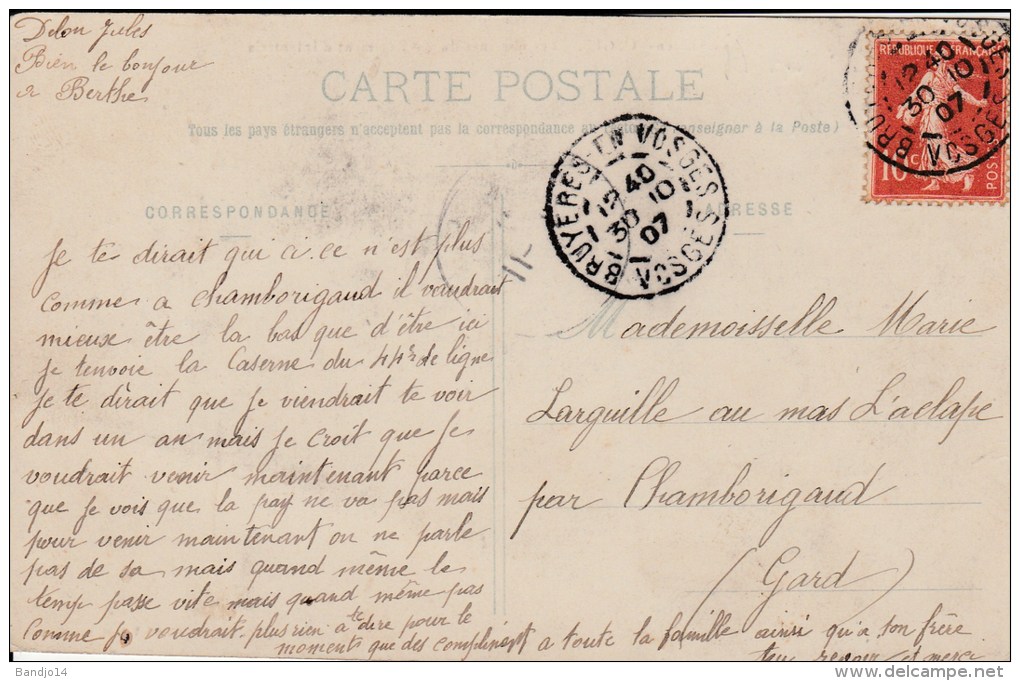 Delon Jules
Bien le bonjour
a Berthe
CARTE POSTALE
Tous les pays étrangers n'acceptent pas la correspondance au (se renseigner à la Poste)
CORRESPONDANCE
ADRESSE
REPUBLIQUE FRANÇAISE
10 c
POSTES
BRUYERES-EN-VOSGES
12 40
30 10
07
VOSGES
BRUYERES-EN-VOSGES
12 40
30 10
07
VOSGES
Je te dirait qui ci.ce n'est plus
comme a chamborigaud il vaudrait
mieux être la bas que d'être ici
je tenvoie la Caserne du 44e de ligne
je te dirait que je viendrait te voir
dans un an mais je croit que je
voudrait venir maintenant parce
que je vois que la pay ne va pas mais
pour venir maintenant on ne parle
pas de sa mais quand même le
temp passe vite mais quand même pas
comme je voudrait. plus rien a te dire pour le
moments que des compliment a toute la famille ainsi qu'a son frère
ton revoir et merci
Mademoisselle Marie
Larguille au mas L'aclape
par Chamborigaud
(Gard)
Bandjo14
http://www.delcampe.net